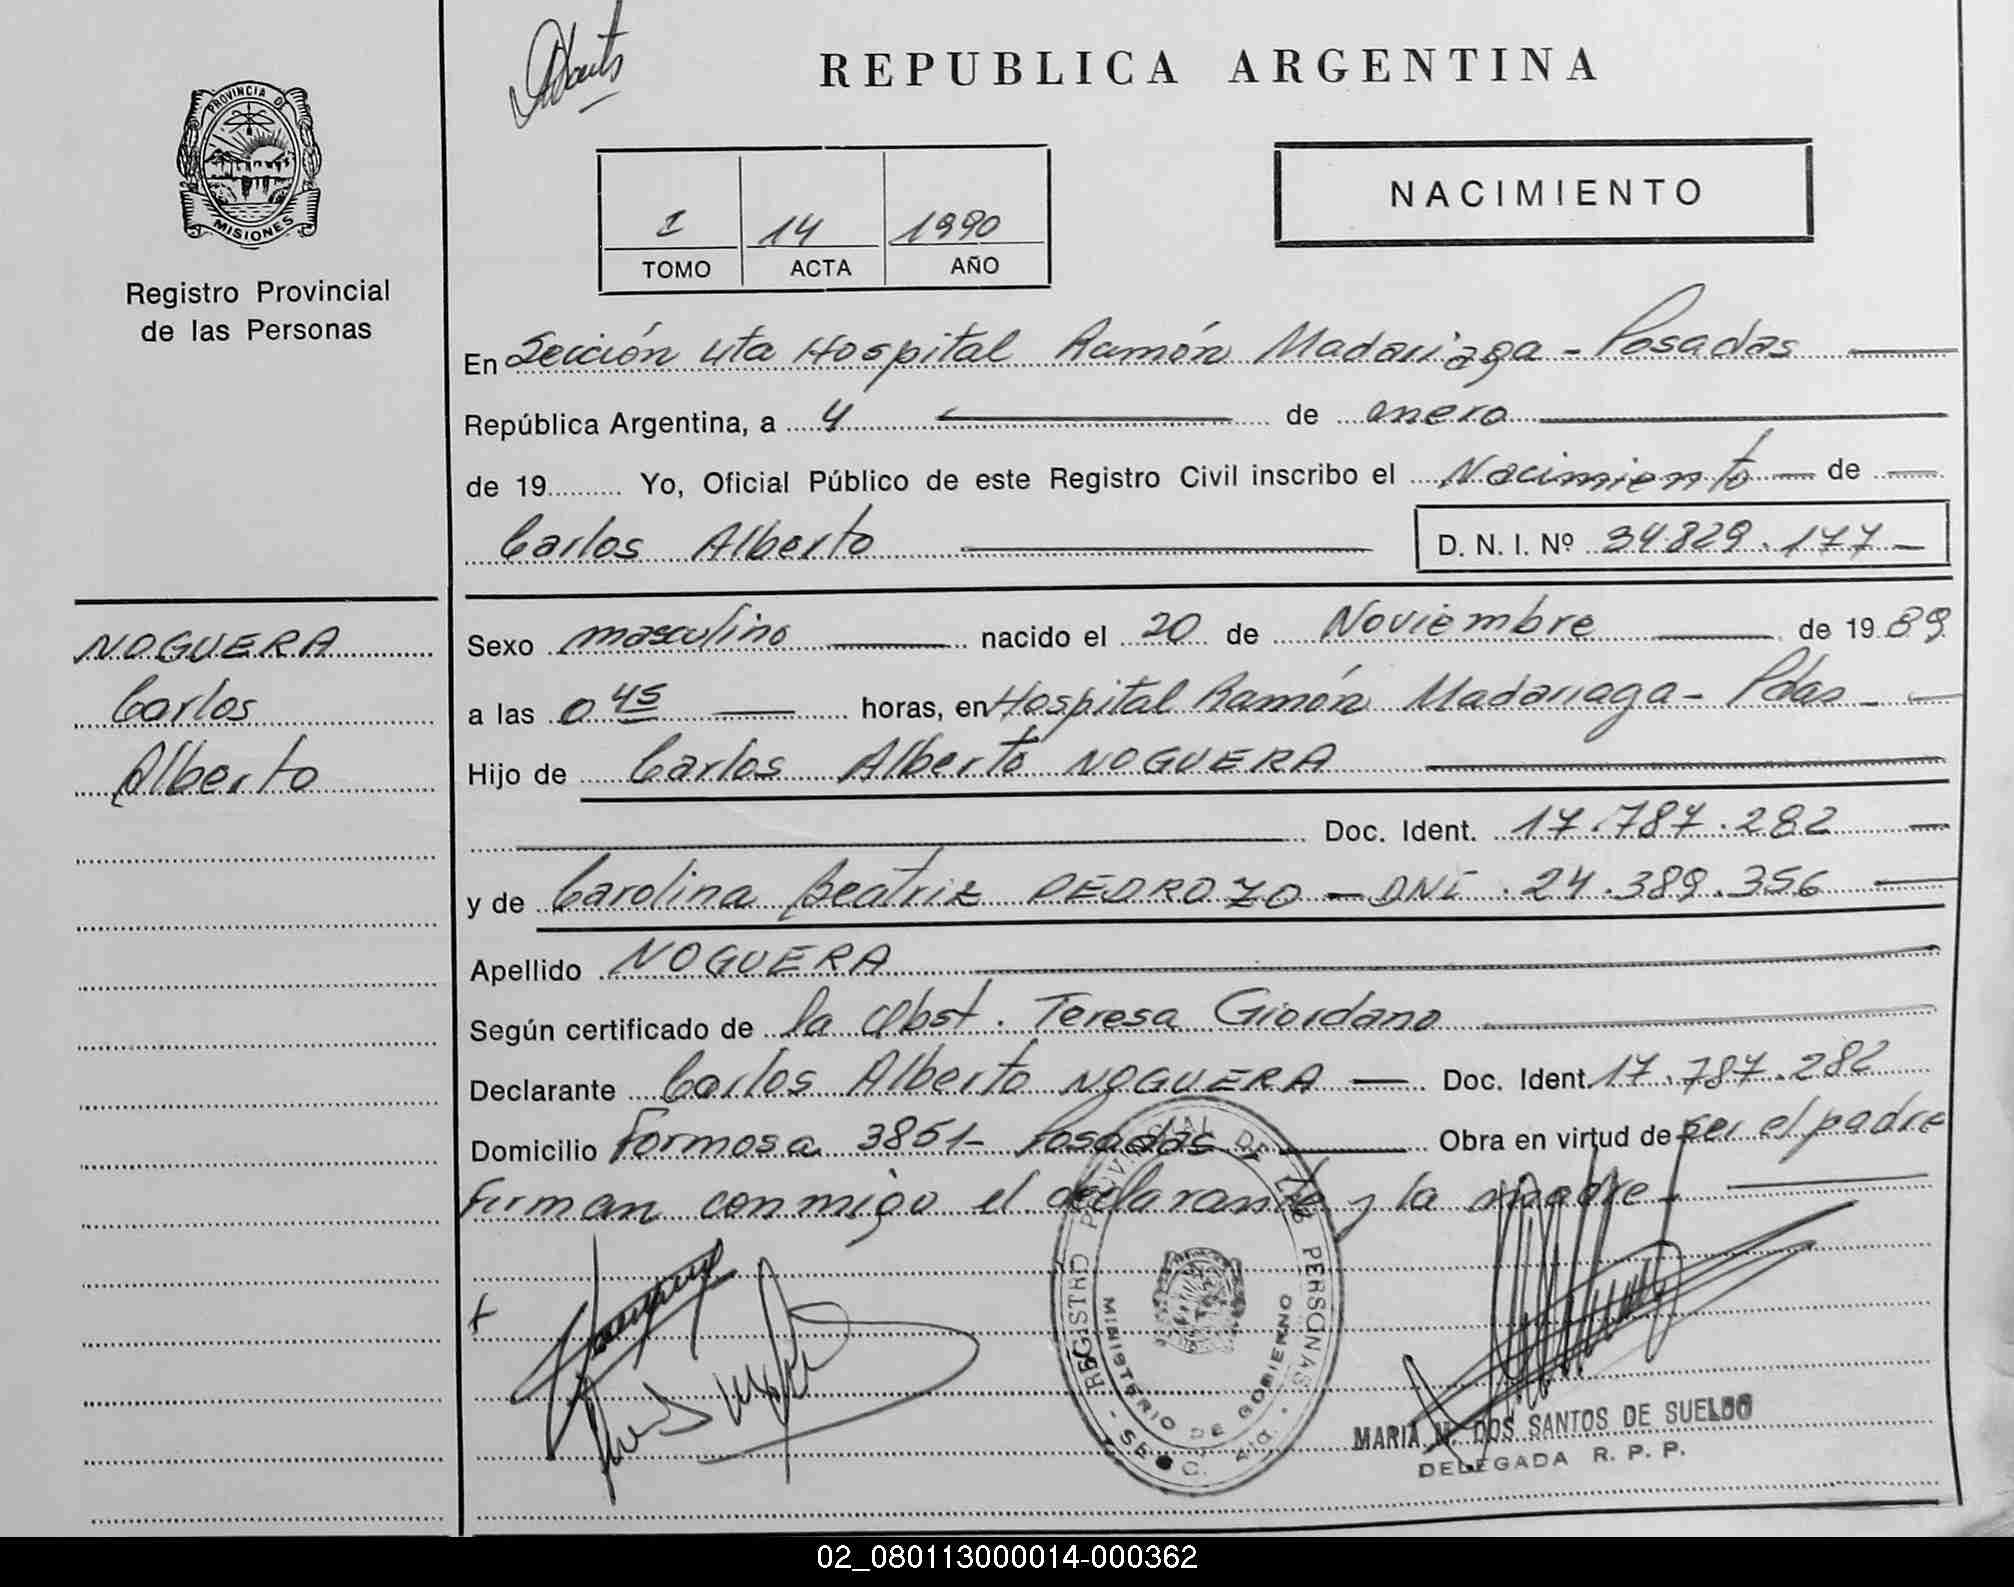 REPUBLICA ARGENTINA
PROVINCIA DE
MISIONES
Registro Provincial
de las Personas
NACIMIENTO
I 14 1990
TOMO ACTA AÑO
En Sección 4ta Hospital Ramón Madariaga - Posadas
República Argentina, a 4 de enero
de 19 Yo, Oficial Público de este Registro Civil inscribo el Nacimiento de
Carlos Alberto D. N. I. Nº 34.829.177
NOGUERA
Carlos
Alberto
Sexo masculino nacido el 20 de Noviembre de 19 89
a las 0 45 horas, en Hospital Ramón Madariaga - Pdas
Hijo de Carlos Alberto NOGUERA
Doc. Ident. 17.787.282
y de Carolina Beatriz PEDROZO - DNI. 24.389.356
Apellido NOGUERA
Según certificado de la Obst. Teresa Giordano
Declarante Carlos Alberto NOGUERA Doc. Ident. 17.787.282
Domicilio Formosa 3851 - Posadas Obra en virtud de ser el padre
Firman conmigo el declarante y la madre
REGISTRO PROVINCIAL DE LAS PERSONAS
MINISTERIO DE GOBIERNO
MARIA M. DOS SANTOS DE SUELDO
DELEGADA R. P. P.
02_080113000014-000362